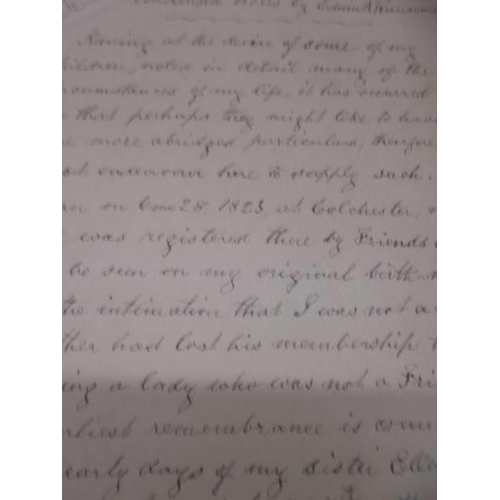 Condensed notes by Edwin Ransome
Having at the desire of some of my
children, noted in detail many of the
circumstances of my life, it has occurred
that perhaps they might like to have
more abridged particulars, therefore
endeavour here to supply such.
on 28. 1823, at Colchester,
was registered there by Friends
be seen on my original birth
the intimation that I was not a
ther had lost his membership
ing a lady who was not a Fri
rliest remembrance is
early days of my sister Elle